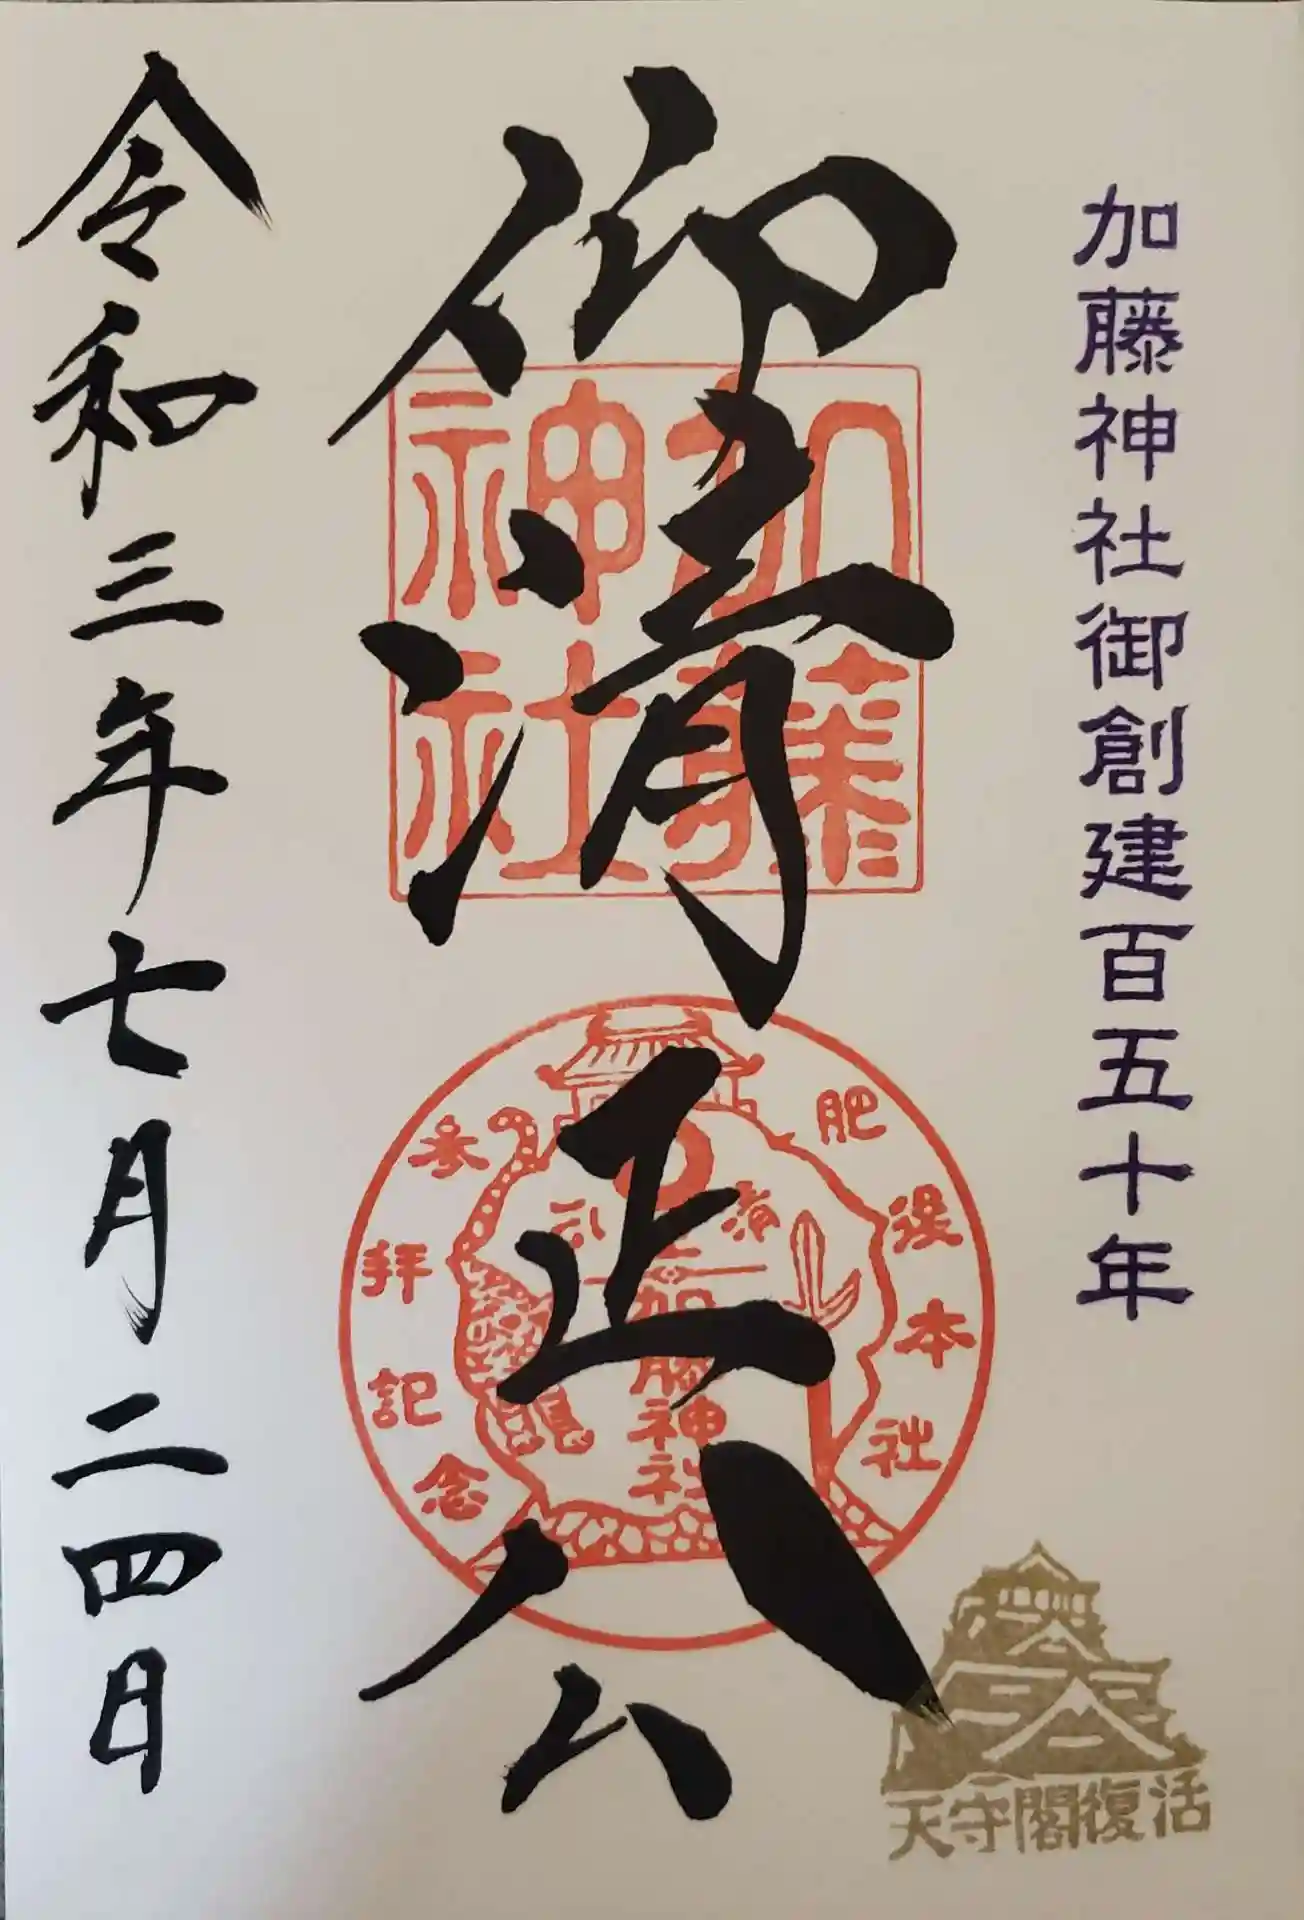 加藤神社御創建百五十年
仰清正公
加藤
神社
肥後本社
参拝記念
加藤神社
令和三年七月二四日
天守閣復活